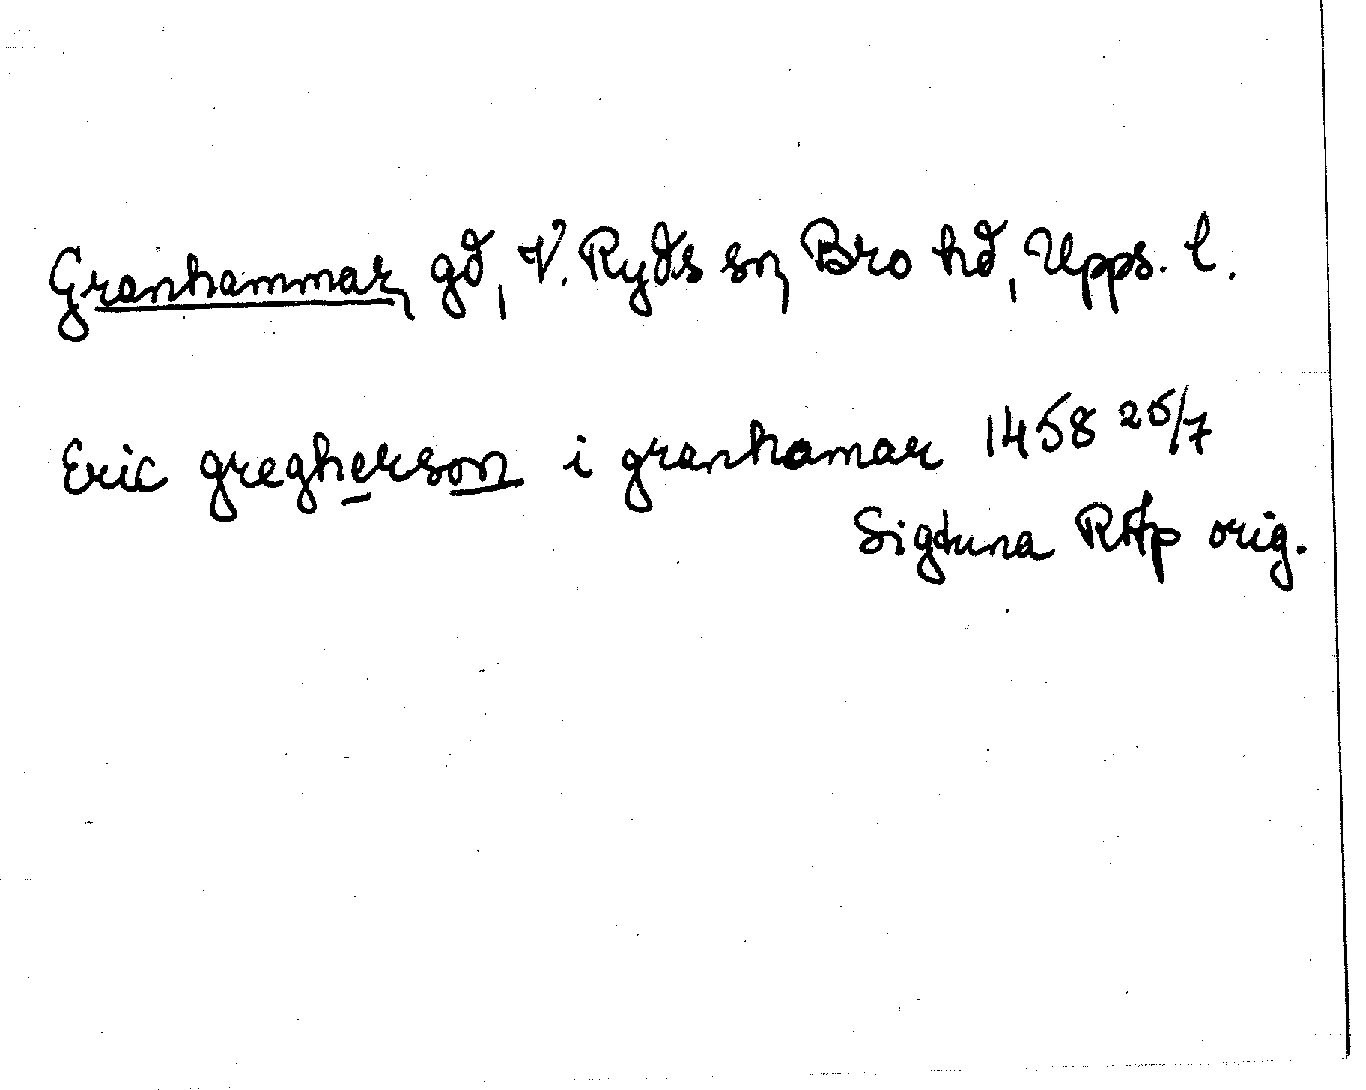 Granhammar, gd, V. Ryds sn, Bro hd, Upps. l.
Eric greghersson i granhamar 1458 25/7
Sigtuna RAp orig.